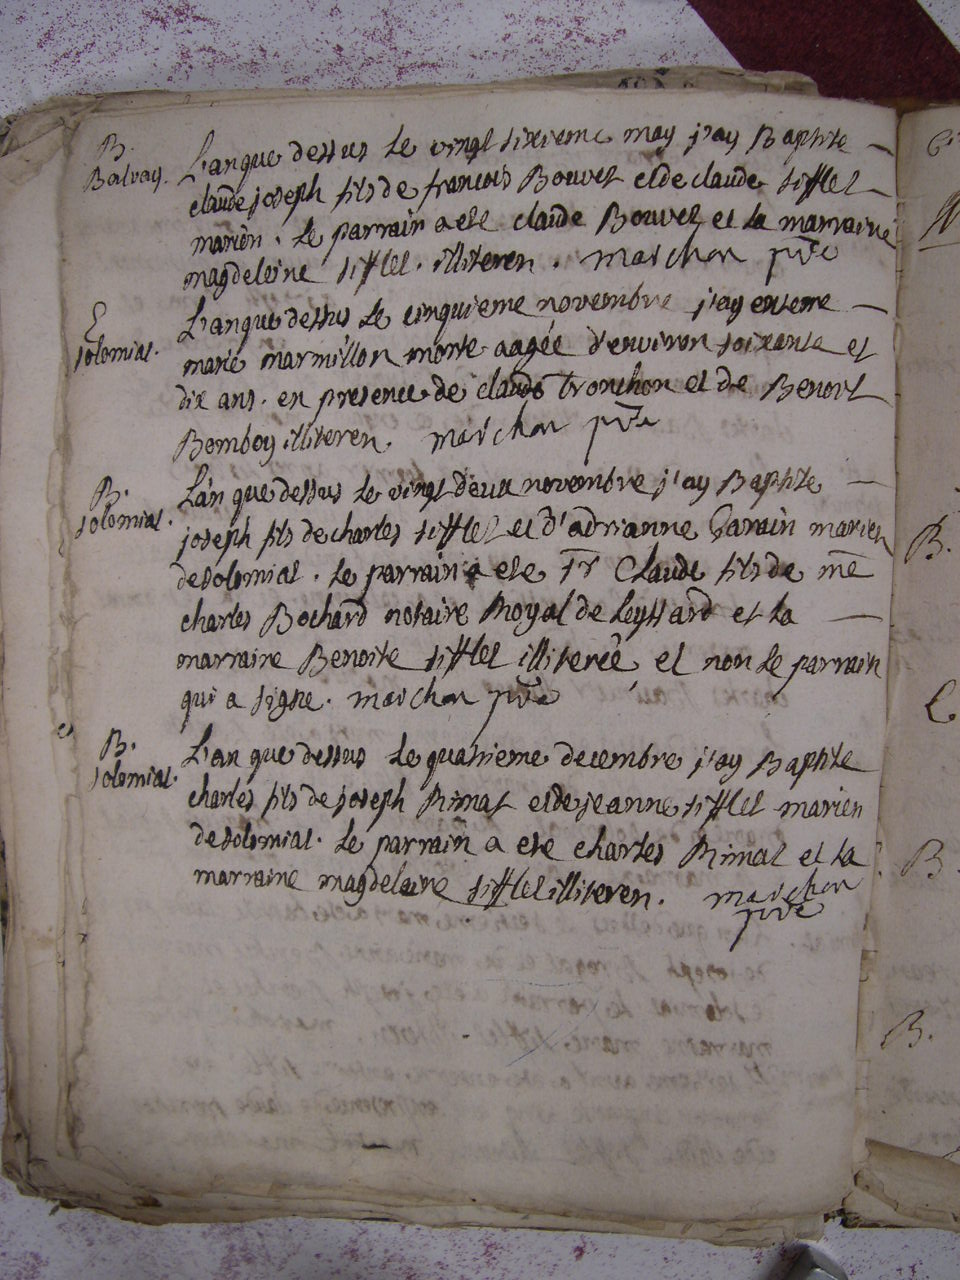 B.
Balvay.
L'an que dessus le vingt sixieme may j'ay Baptise
claude joseph fils de francois Bouvet et de claude sifflet
mariën. le parrain a ete claude Bouvet et la marraine
magdeleine sifflet. illiteren. marchon ptre
E
solomiat.
L'an que dessus le cinquieme novembre j'ay enterre
marie marmillon morte aagée d'environ soixante et
dix ans. en presence de claude tronchon et de Benoit
Bomboy illiteren. marchon ptre
B.
solomiat.
L'an que dessus le vingt deux novembre j'ay Baptise
joseph fils de charles sifflet et d'adrianne Garain marien
de solomiat. le parrain a ete sr Claude fils de me
charles Bochard notaire Royal de leyssard et la
marraine Benoite sifflet illiteree et non le parrain
qui a signe. marchon ptre
B.
solomiat.
L'an que dessus le quatrieme decembre j'ay Baptise
charles fils de joseph Rimat et de jeanne sifflet marien
de solomiat. le parrain a ete charles Rimat et la
marraine magdeleine sifflet illiteren. marchon
ptre
B.
B.
B.